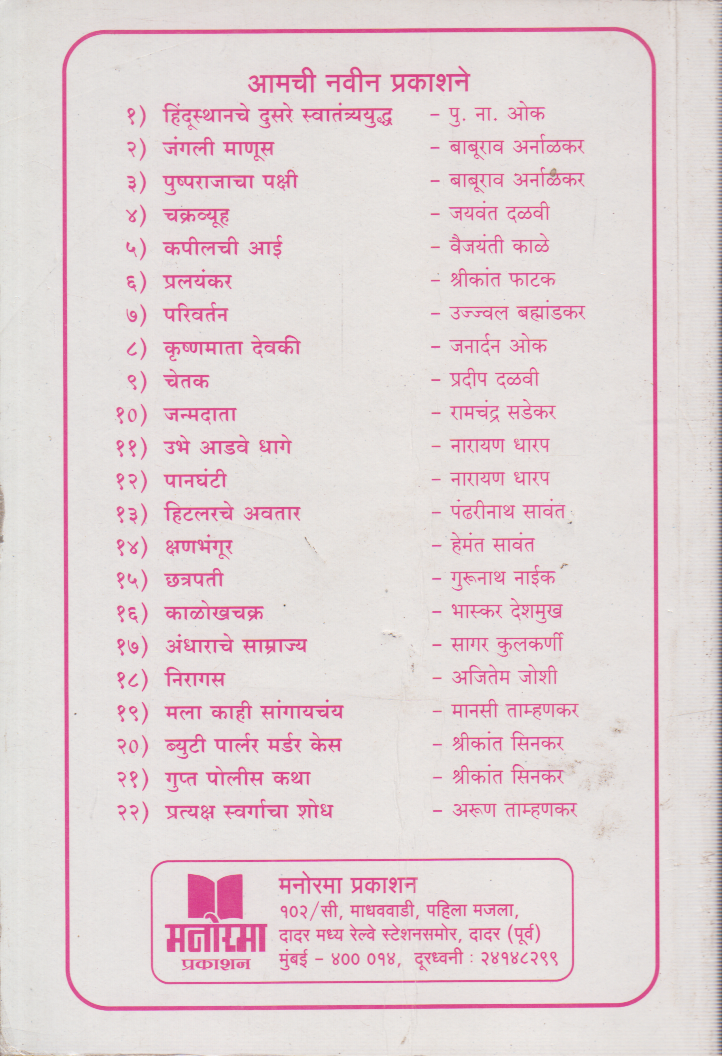 आमची नवीन प्रकाशने
१) हिंदूस्थानचे दुसरे स्वातंत्र्ययुद्ध – पु. ना. ओक
२) जंगली माणूस – बाबूराव अर्नाळकर
३) पुष्पराजाचा पक्षी – बाबूराव अर्नाळकर
४) चक्रव्यूह – जयवंत दळवी
५) कपीलची आई – वैजयंती काळे
६) प्रलयंकर – श्रीकांत फाटक
७) परिवर्तन – उज्ज्वल बह्मांडकर
८) कृष्णमाता देवकी – जनार्दन ओक
९) चेतक – प्रदीप दळवी
१०) जन्मदाता – रामचंद्र सडेकर
११) उभे आडवे धागे – नारायण धारप
१२) पानघंटी – नारायण धारप
१३) हिटलरचे अवतार – पंढरीनाथ सावंत
१४) क्षणभंगूर – हेमंत सावंत
१५) छत्रपती – गुरूनाथ नाईक
१६) काळोखचक्र – भास्कर देशमुख
१७) अंधाराचे साम्राज्य – सागर कुलकर्णी
१८) निरागस – अजितेम जोशी
१९) मला काही सांगायचंय – मानसी ताम्हणकर
२०) ब्युटी पार्लर मर्डर केस – श्रीकांत सिनकर
२१) गुप्त पोलीस कथा – श्रीकांत सिनकर
२२) प्रत्यक्ष स्वर्गाचा शोध – अरूण ताम्हणकर
मनोरमा
प्रकाशन
मनोरमा प्रकाशन
१०२/सी, माधववाडी, पहिला मजला,
दादर मध्य रेल्वे स्टेशनसमोर, दादर (पूर्व)
मुंबई – ४०० ०१४, दूरध्वनी : २४१४८२९९